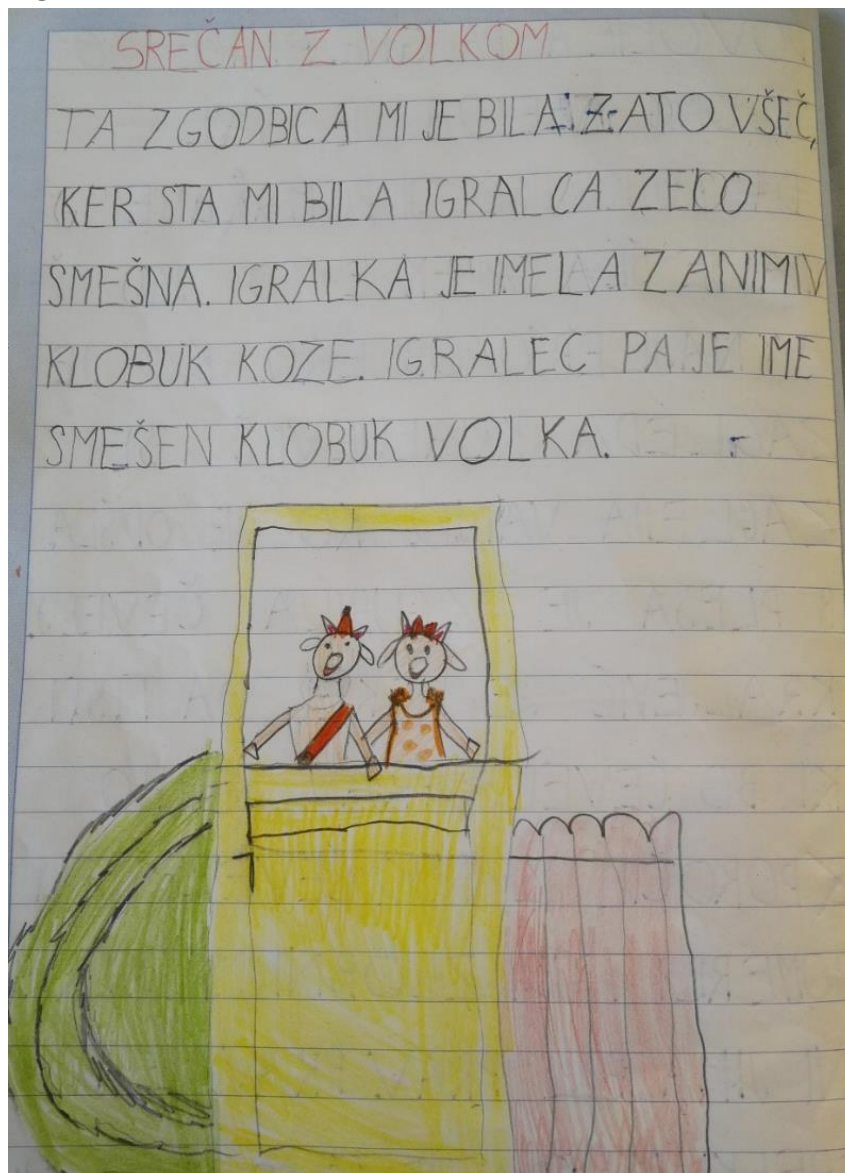 SREČAN Z VOLKOM
TA ZGODBICA MI JE BILA ZATO VŠEČ,
KER STA MI BILA IGRALCA ZELO
SMEŠNA. IGRALKA JE IMELA ZANIMIV
KLOBUK KOZE. IGRALEC PA JE IME
SMEŠEN KLOBUK VOLKA.